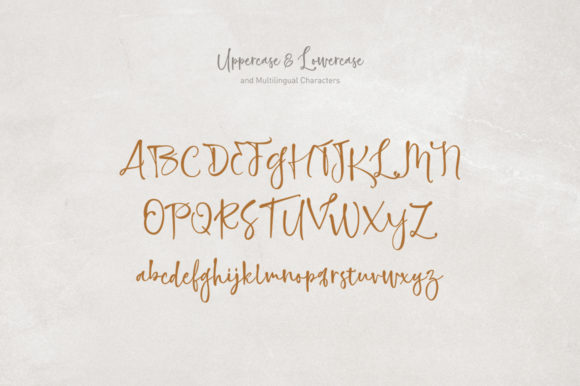 Uppercase & Lowercase
and Multilingual Characters
ABCDEFGHIJKLMN
OPQRSTUVWXYZ
abcdefghijklmnopqrstuvwxyz